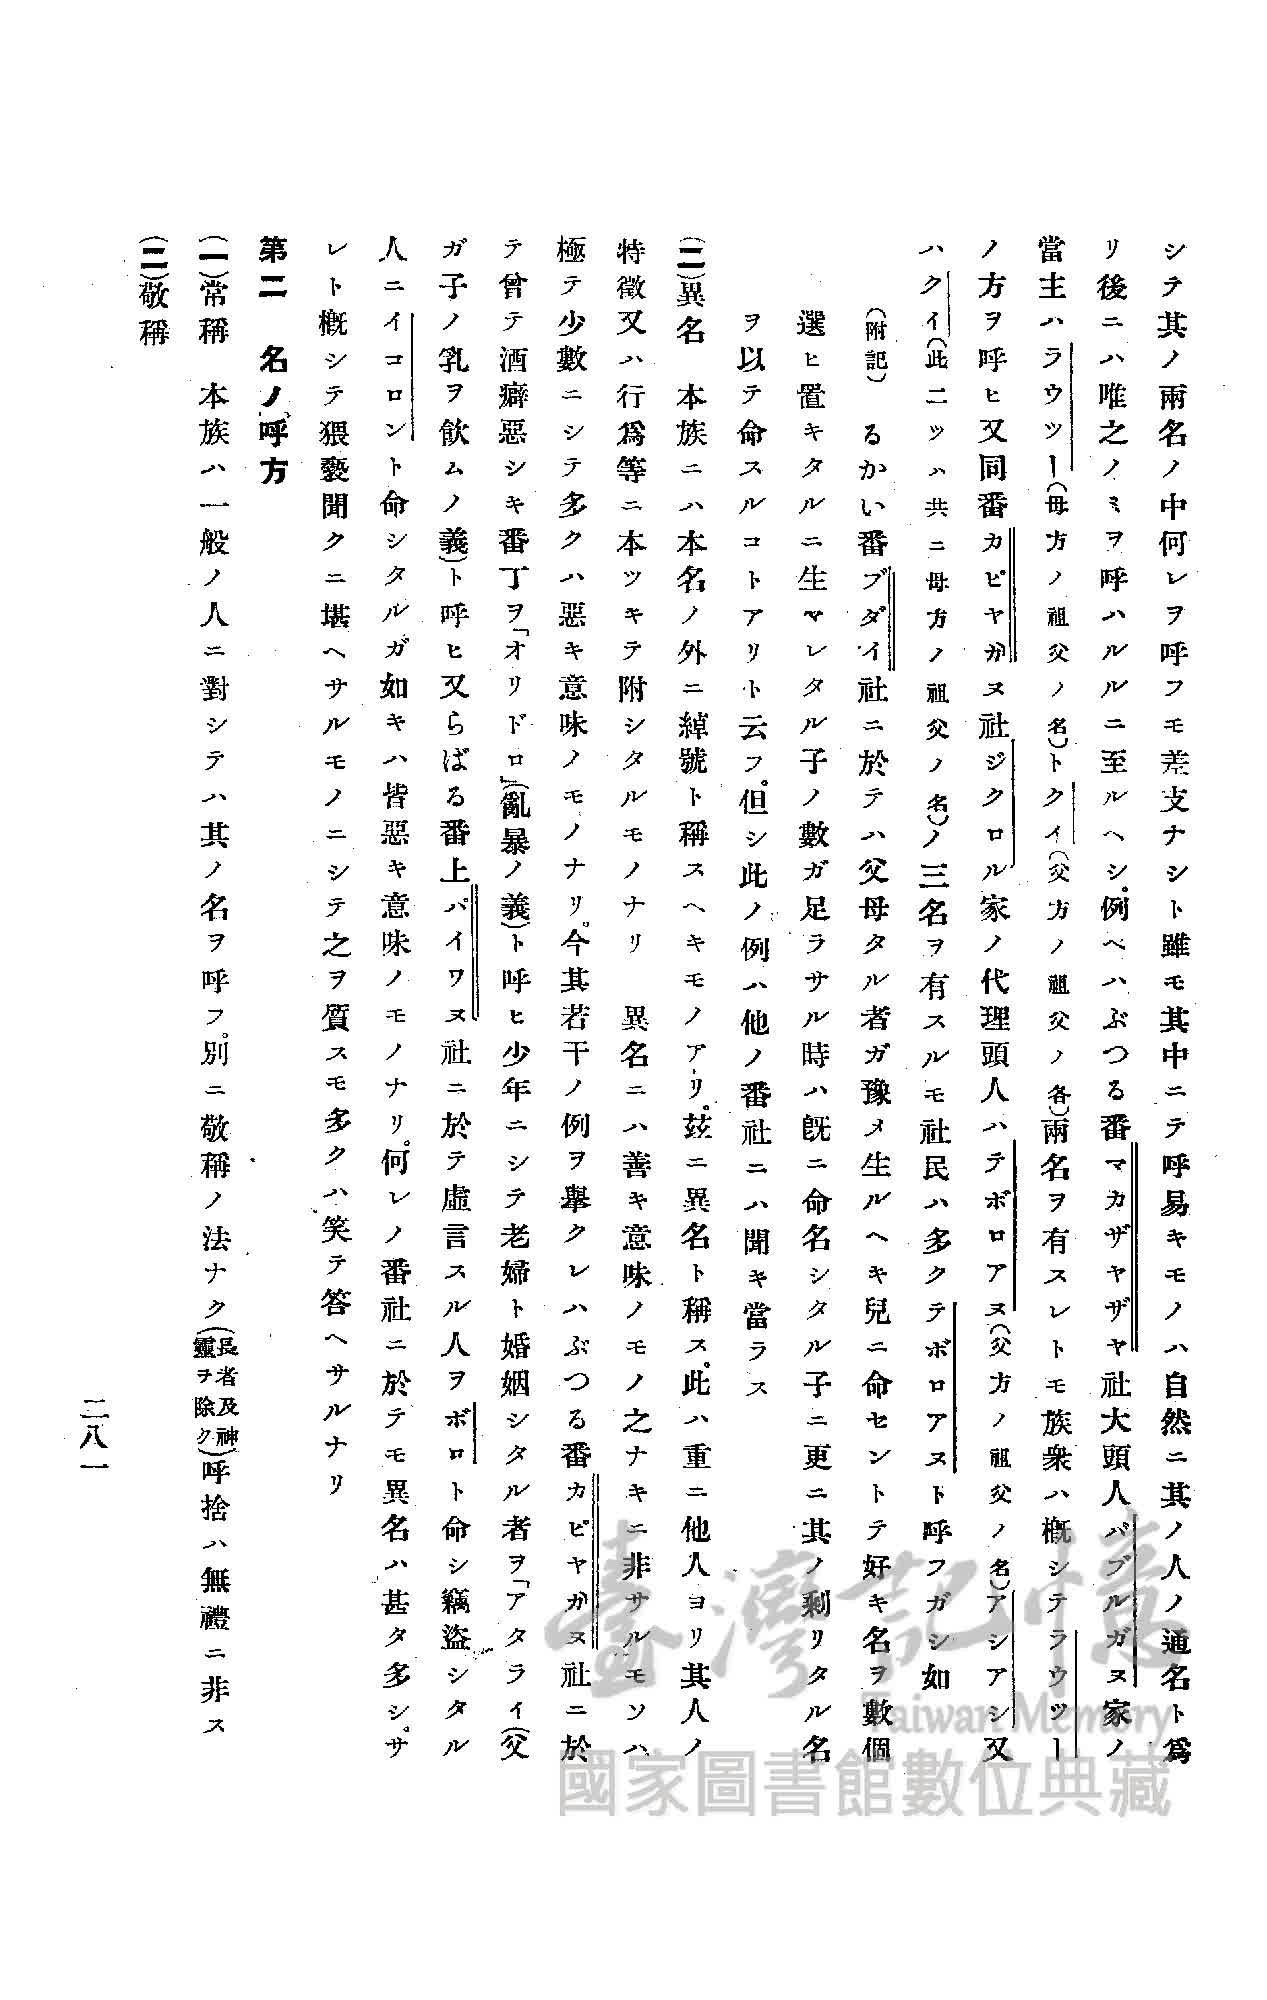 シテ其ノ兩名ノ中何レヲ呼フモ差支ナシト雖モ其中ニテ呼易キモノハ自然ニ其ノ人ノ通名ト爲
リ後ニハ唯之ノミヲ呼ハルルニ至ルヘシ。例ヘハぶつる番マカザヤザヤ社大頭人パブルガヌ家ノ
當主ハラウツー(母方ノ祖父ノ名)トクイ(父方ノ祖父ノ各)兩名ヲ有スレトモ族衆ハ概シテラウツー
ノ方ヲ呼ヒ又同番カピヤガヌ社ジクロル家ノ代理頭人ハテボロアヌ(父方ノ祖父ノ名)アシアシ又
ハクイ(此二ツハ共ニ母方ノ祖父ノ名)ノ三名ヲ有スルモ社民ハ多クテボロアヌト呼フガシ如
(附記) るかい番ブダイ社ニ於テハ父母タル者ガ豫メ生ルヘキ兒ニ命セントテ好キ名ヲ數個
選ヒ置キタルニ生マレタル子ノ數ガ足ラサル時ハ既ニ命名シタル子ニ更ニ其ノ剩リタル名
ヲ以テ命スルコトアリト云フ。但シ此ノ例ハ他ノ番社ニハ聞キ當ラス
(二)異名 本族ニハ本名ノ外ニ綽號ト稱スヘキモノアリ。茲ニ異名ト稱ス。此ハ重ニ他人ヨリ其人ノ
特徵又ハ行爲等ニ本ツキテ附シタルモノナリ 異名ニハ善キ意味ノモノ之ナキニ非サルモソハ
極テ少數ニシテ多クハ惡キ意味ノモノナリ。今其若干ノ例ヲ擧クレハぶつる番カピヤガヌ社ニ於
テ曾テ酒癖惡シキ番丁ヲ「オリドロ」(亂暴ノ義)ト呼ヒ少年ニシテ老婦ト婚姻シタル者ヲ「アタライ(父
ガ子ノ乳ヲ飮ムノ義)ト呼ヒ又らばる番上パイワヌ社ニ於テ虛言スル人ヲボロト命シ竊盜シタル
人ニイコロント命シタルガ如キハ皆惡キ意味ノモノナリ。何レノ番社ニ於テモ異名ハ甚タ多シ。サ
レト概シテ猥褻聞クニ堪ヘサルモノニシテ之ヲ質スモ多クハ笑テ答ヘサルナリ
第二 名ノ呼方
(一)常稱 本族ハ一般ノ人ニ對シテハ其ノ名ヲ呼フ。別ニ敬稱ノ法ナク(長者及神靈ヲ除ク)呼捨ハ無禮ニ非ス
(二)敬稱
二八一
臺灣記憶
Taiwan Memory
國家圖書館數位典藏